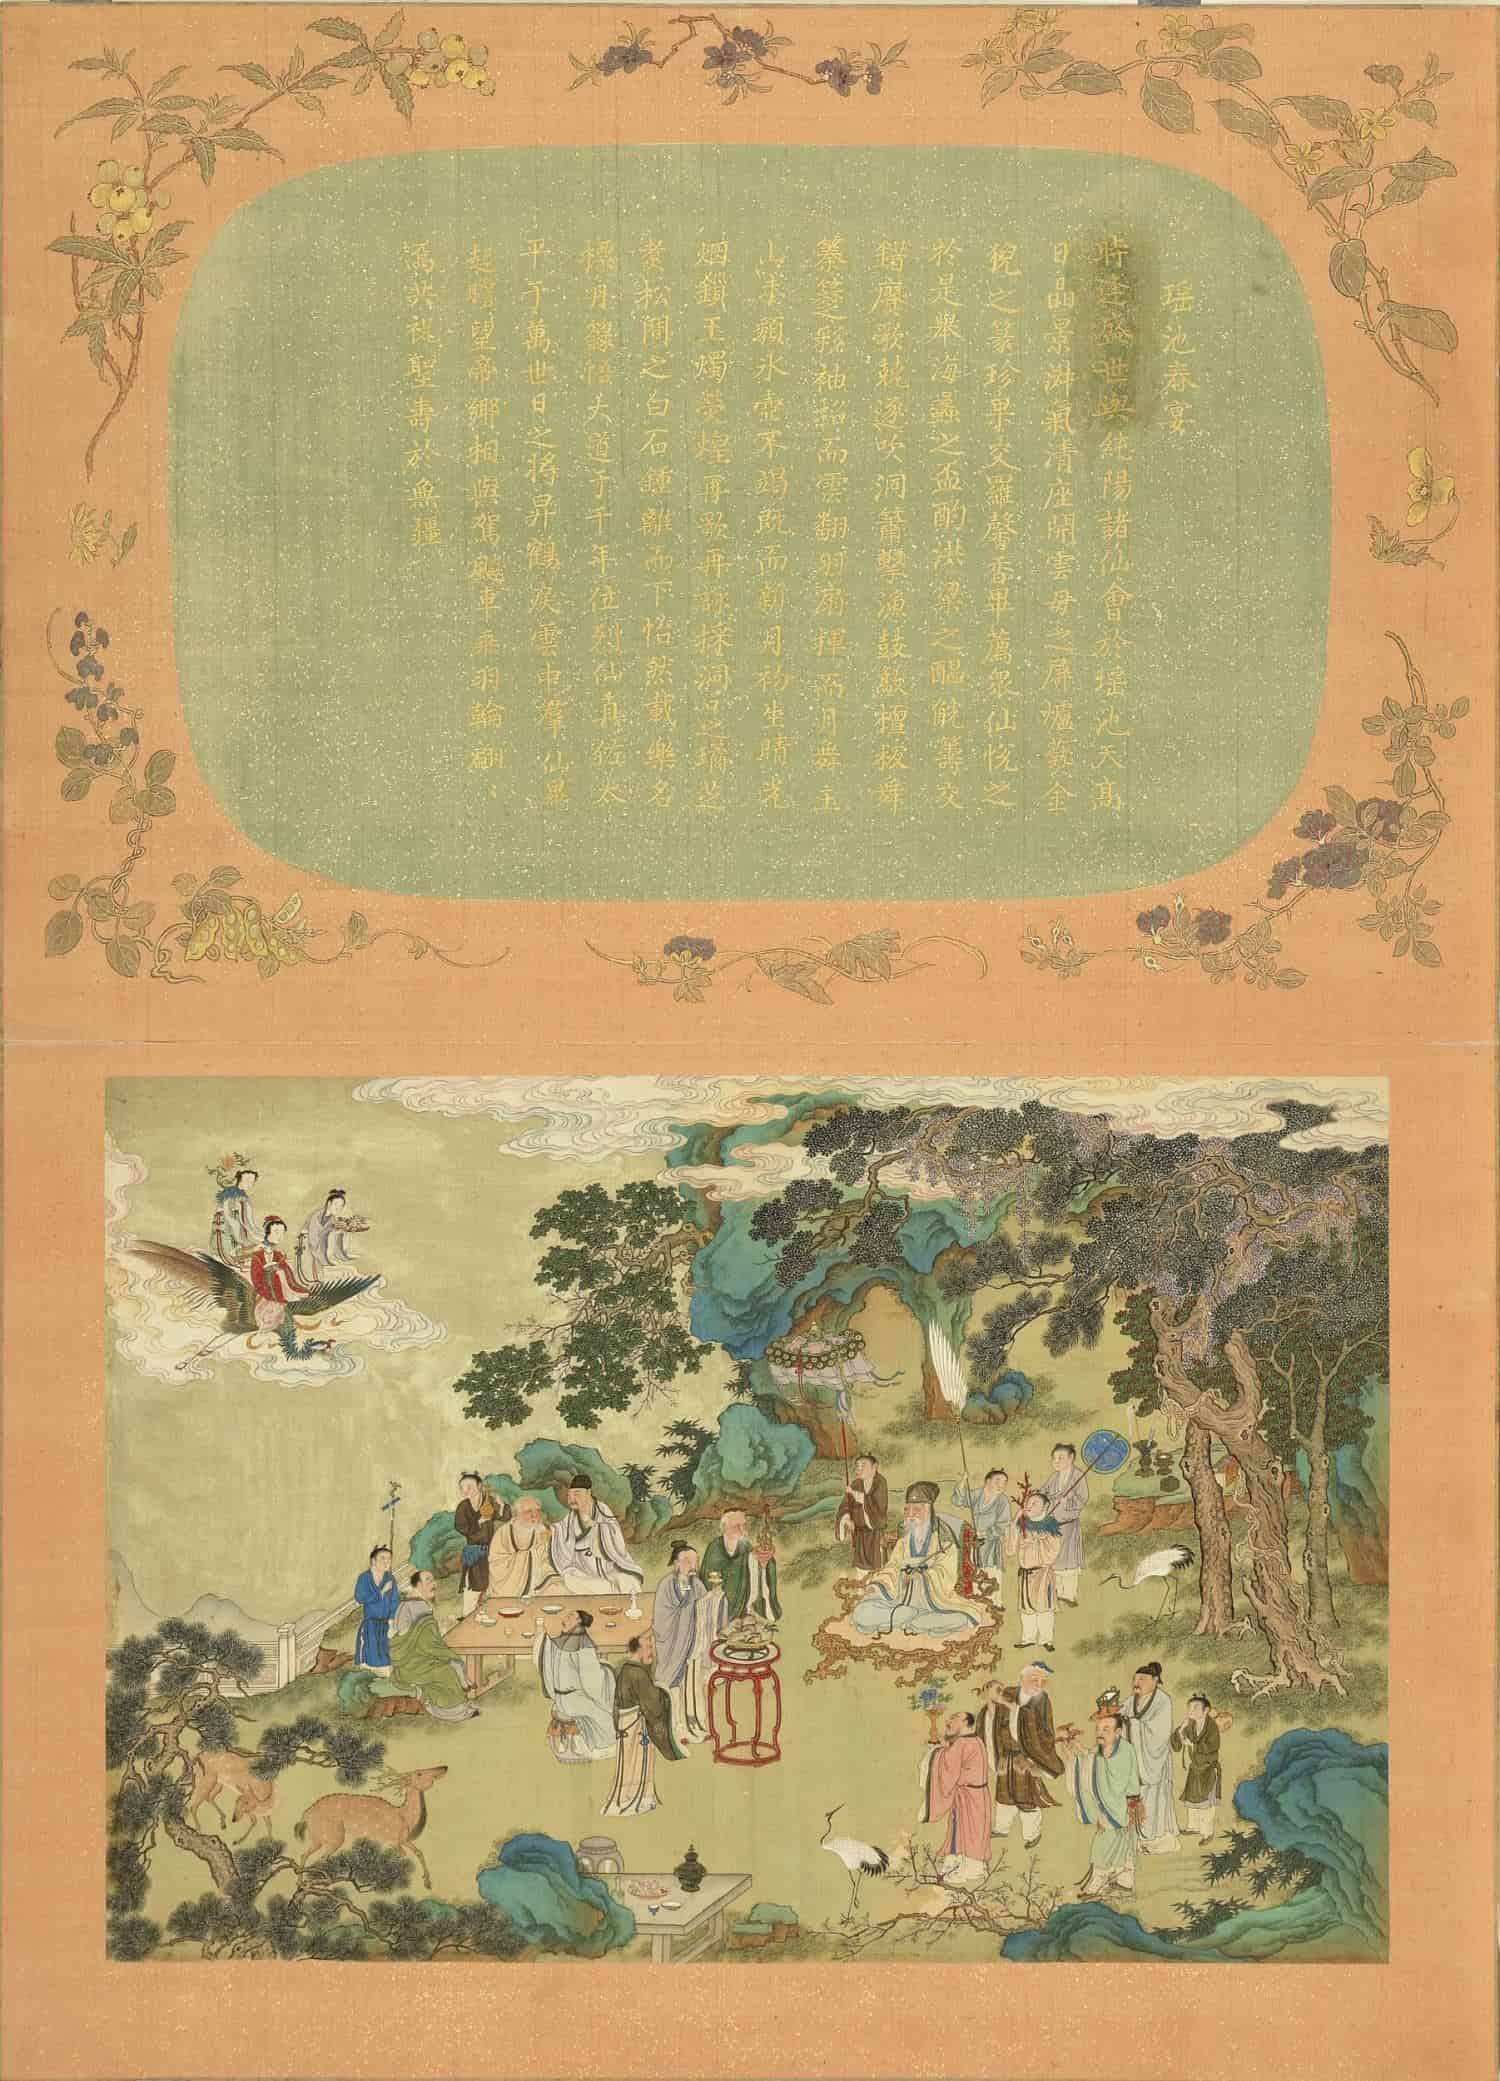 瑶池春宴
時逢盛世與純陽諸仙會於瑶池天高
日晶景淑氣清座開雲母之屏爐爇金
猊之篆珍果交羅馨香畢薦衆仙悅之
於是舉海蠡之盃酌洪梁之醞觥籌交
錯賡歌兢逐吹洞簫擊漁鼓敲檀板舜
之袖而雲翻羽扇揮而月舞玉
山未頹氷壺不竭既而新月初生晴光
烟鎖玉燭熒煌再歌再詠採洞口之瑞芝
煮松間之白石鍾離而下怡然載樂名
標丹籙悟大道于千年位列仙真太
平于萬世日之將昇鶴戾雲中羣仙畢
起瞻望帝鄉相與駕飇車乘羽輪翩〻
焉共祝聖壽於無疆